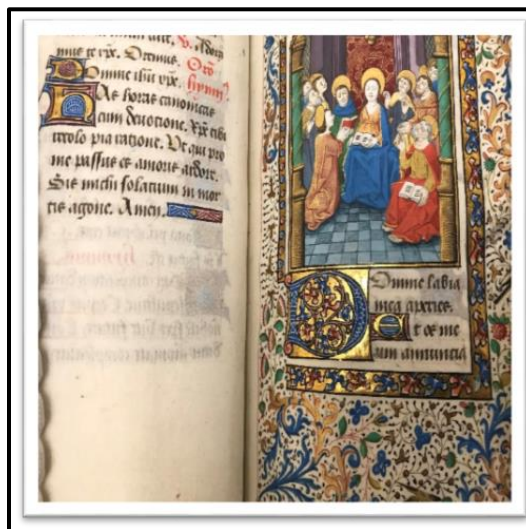 v. Ador
mus te xpe. Oremus. Oro
Domine ihu xpe.
Has horas canonicas
cum deuotione. Xpe tibi
recolo pia racione. Vt qui pro
me passus es amoris ardore.
Sis michi solacium in mor
tis agone. Amen.
Domine labia
mea aperies.
Et os me
um annuncia